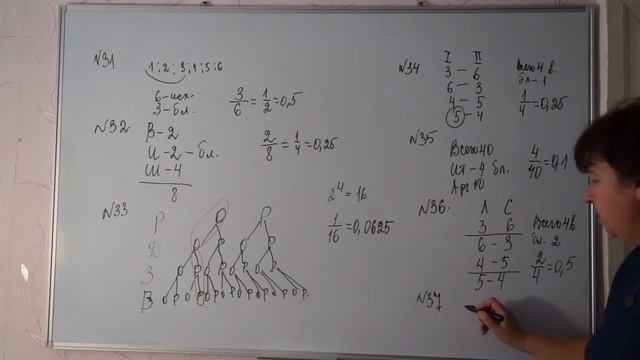 N31 1;2;3;4;5;6
6-исх.
3-бл.
3/6 = 1/2 = 0,5
N32 В-2
И-2-бл.
Ш-4
8
2/8 = 1/4 = 0,25
N33
Р
Д
З
В
О Р О Р О Р О Р О Р О Р О Р О Р
2^4 = 16
1/16 = 0,0625
N34
I II
3 - 6
6 - 3
4 - 5
5 - 4
Всего 4 в.
бл-1
1/4 = 0,25
N35
Всего 40
Ит-4 бл.
Арг 10
4/40 = 0,1
N36.
Л С
3 6
6 - 3
4 - 5
5 - 4
Всего 4в
бл. 2
2/4 = 0,5
N37